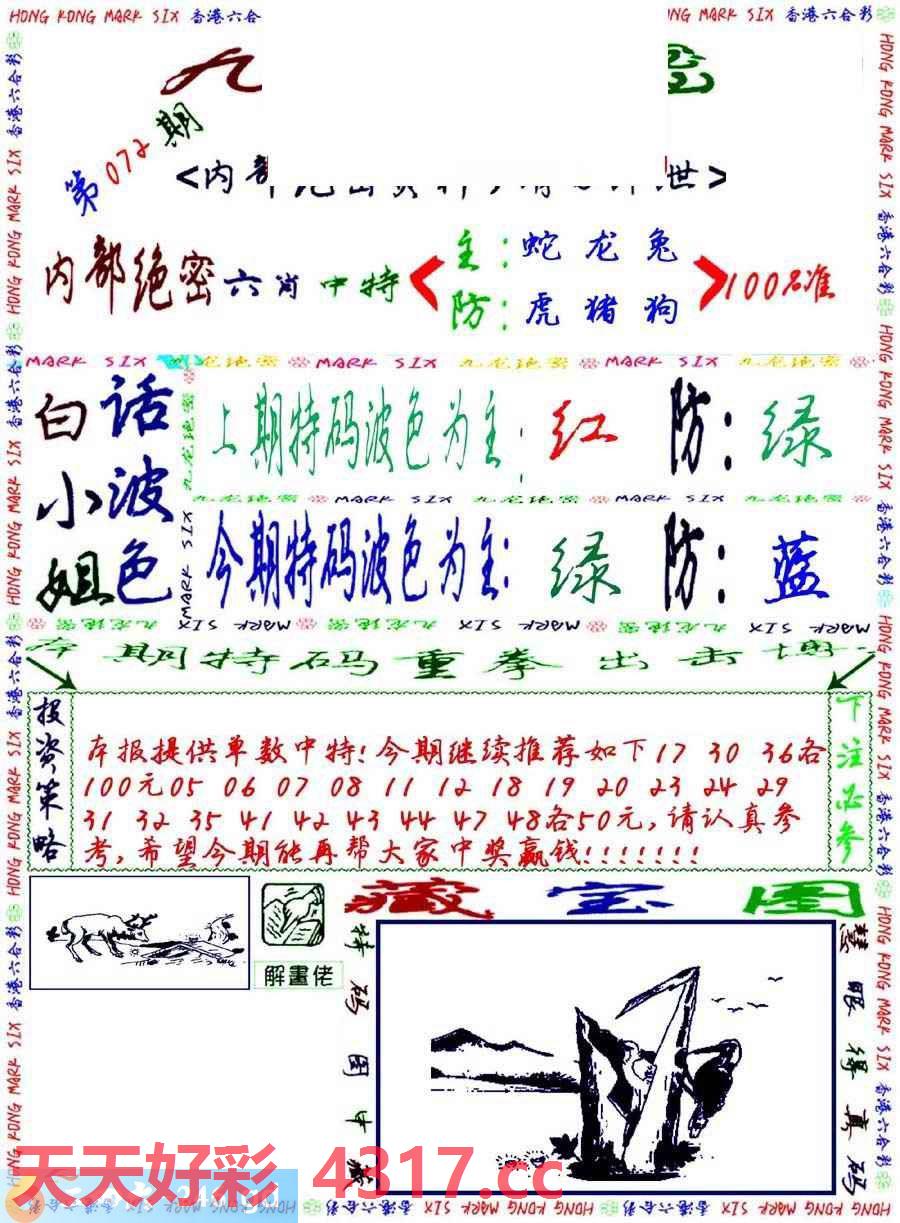 HONG KONG MARK SIX 香港六合
NG MARK SIX 香港六合彩
九
密
第072期
<内部
世>
内部绝密六肖中特
主:蛇龙兔
防:虎猪狗
100%准
MARK SIX 九龙绝密 MARK SIX 九龙绝密 MARK SIX 九龙绝密
白话
小波
姐色
上期特码波色为主:红 防:绿
九龙绝密 MARK SIX 九龙绝密 MARK SIX 九龙绝密
今期特码波色为主:绿 防:蓝
MARK SIX 九龙绝密 MARK SIX 九龙绝密 MARK SIX
本期特码重拳出击
投资策略
本报提供单数中特!今期继续推荐如下17 30 36各
100元05 06 07 08 11 12 18 19 20 23 24 29
31 32 35 41 42 43 44 47 48各50元,请认真参
考,希望今期能再帮大家中奖赢钱!!!!!!!
下注必参
解畫佬
藏宝图
特码图中藏
慧眼得真码
天天好彩 4317.cc
HONG KONG MARK SIX 香港六合彩